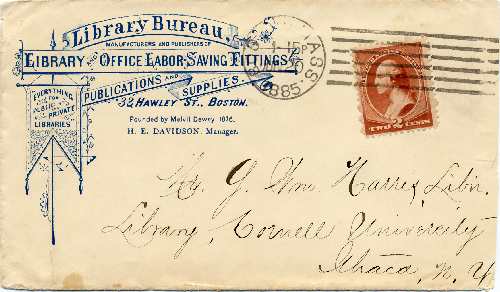 Library Bureau,
MANUFACTURERS AND PUBLISHERS OF
LIBRARY AND OFFICE LABOR-SAVING FITTINGS
PUBLICATIONS AND SUPPLIES.
32 HAWLEY ST., BOSTON.
EVERYTHING
FOR
PUBLIC OR
PRIVATE
LIBRARIES
Founded by Melvil Dewey 1876.
H. E. DAVIDSON, Manager.
MASS
1885
TWO 2 CENTS
Mr. G. Wm. Harris, Libn.
Library, Cornell University
Ithaca, N. Y.